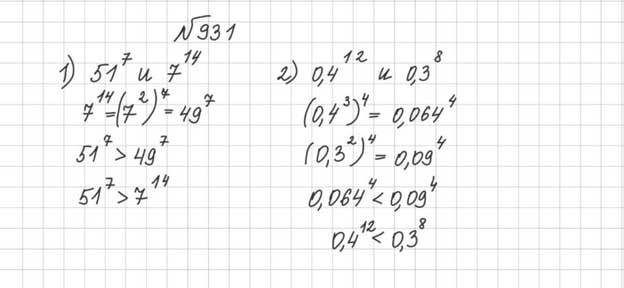 √931
1) 51⁷ и 7¹⁴
7¹⁴=(7²)⁷=49⁷
51⁷>49⁷
51⁷>7¹⁴
2) 0,4¹² и 0,3⁸
(0,4³)⁴=0,064⁴
(0,3²)⁴=0,09⁴
0,064⁴<0,09⁴
0,4¹²<0,3⁸